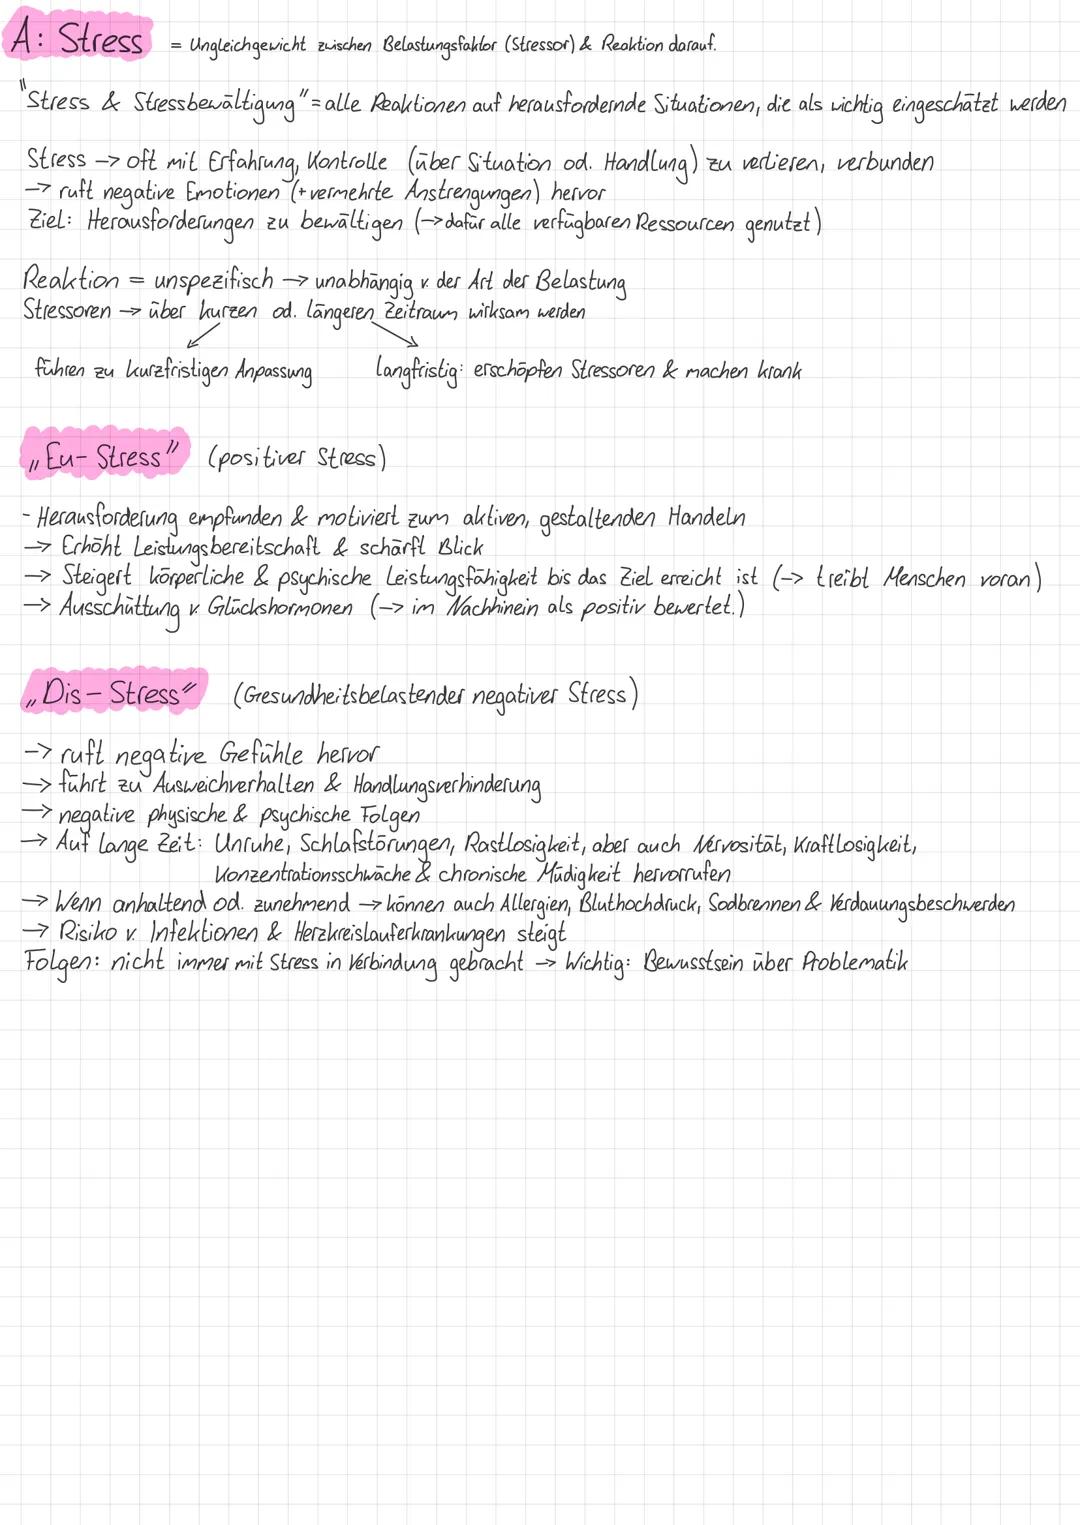 A: Stress = Ungleichgewicht zwischen Belastungsfaktor (Stressor) & Reaktion darauf.
"Stress & Stressbewältigung" = alle Reaktionen auf herausfordernde Situationen, die als wichtig eingeschätzt werden
Stress → oft mit Erfahrung, Kontrolle (über Situation od. Handlung) zu verlieren, verbunden
→ ruft negative Emotionen (+ vermehrte Anstrengungen) hervor
Ziel: Herausforderungen zu bewältigen (→ dafür alle verfügbaren Ressourcen genutzt)
Reaktion = unspezifisch → unabhängig v. der Art der Belastung
Stressoren → über kurzen od. längeren Zeitraum wirksam werden
führen zu kurzfristigen Anpassung langfristig: erschöpfen Stressoren & machen krank
„Eu-Stress" (positiver Stress)
- Herausforderung empfunden & motiviert zum aktiven, gestaltenden Handeln
→ Erhöht Leistungsbereitschaft & schärft Blick
→ Steigert körperliche & psychische Leistungsfähigkeit bis das Ziel erreicht ist (→ treibt Menschen voran)
→ Ausschüttung v. Glückshormonen (→ im Nachhinein als positiv bewertet.)
„Dis-Stress" (Gesundheitsbelastender negativer Stress)
→ ruft negative Gefühle hervor
→ führt zu Ausweichverhalten & Handlungsverhinderung
→ negative physische & psychische Folgen
→ Auf lange Zeit: Unruhe, Schlafstörungen, Rastlosigkeit, aber auch Nervosität, Kraftlosigkeit,
Konzentrationsschwäche & chronische Müdigkeit hervorrufen
→ Wenn anhaltend od. zunehmend → können auch Allergien, Bluthochdruck, Sodbrennen & Verdauungsbeschwerden
→ Risiko v. Infektionen & Herzkreislauferkrankungen steigt
Folgen: nicht immer mit Stress in Verbindung gebracht → Wichtig: Bewusstsein über Problematik